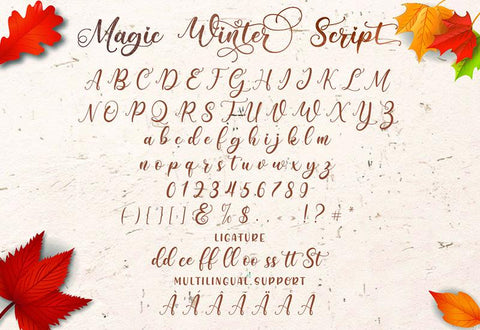 Magic Winter Script
A B C D E F G H I J K L M
N O P Q R S T U V W X Y Z
a b c d e f g h i j k l m
n o p q r s t u v w x y z
0 1 2 3 4 5 6 7 8 9
( ) [ ] { } & % $ . . < > ! ? #
LIGATURE
dd ee ff ll oo ss tt St
MULTILINGUAL SUPPORT